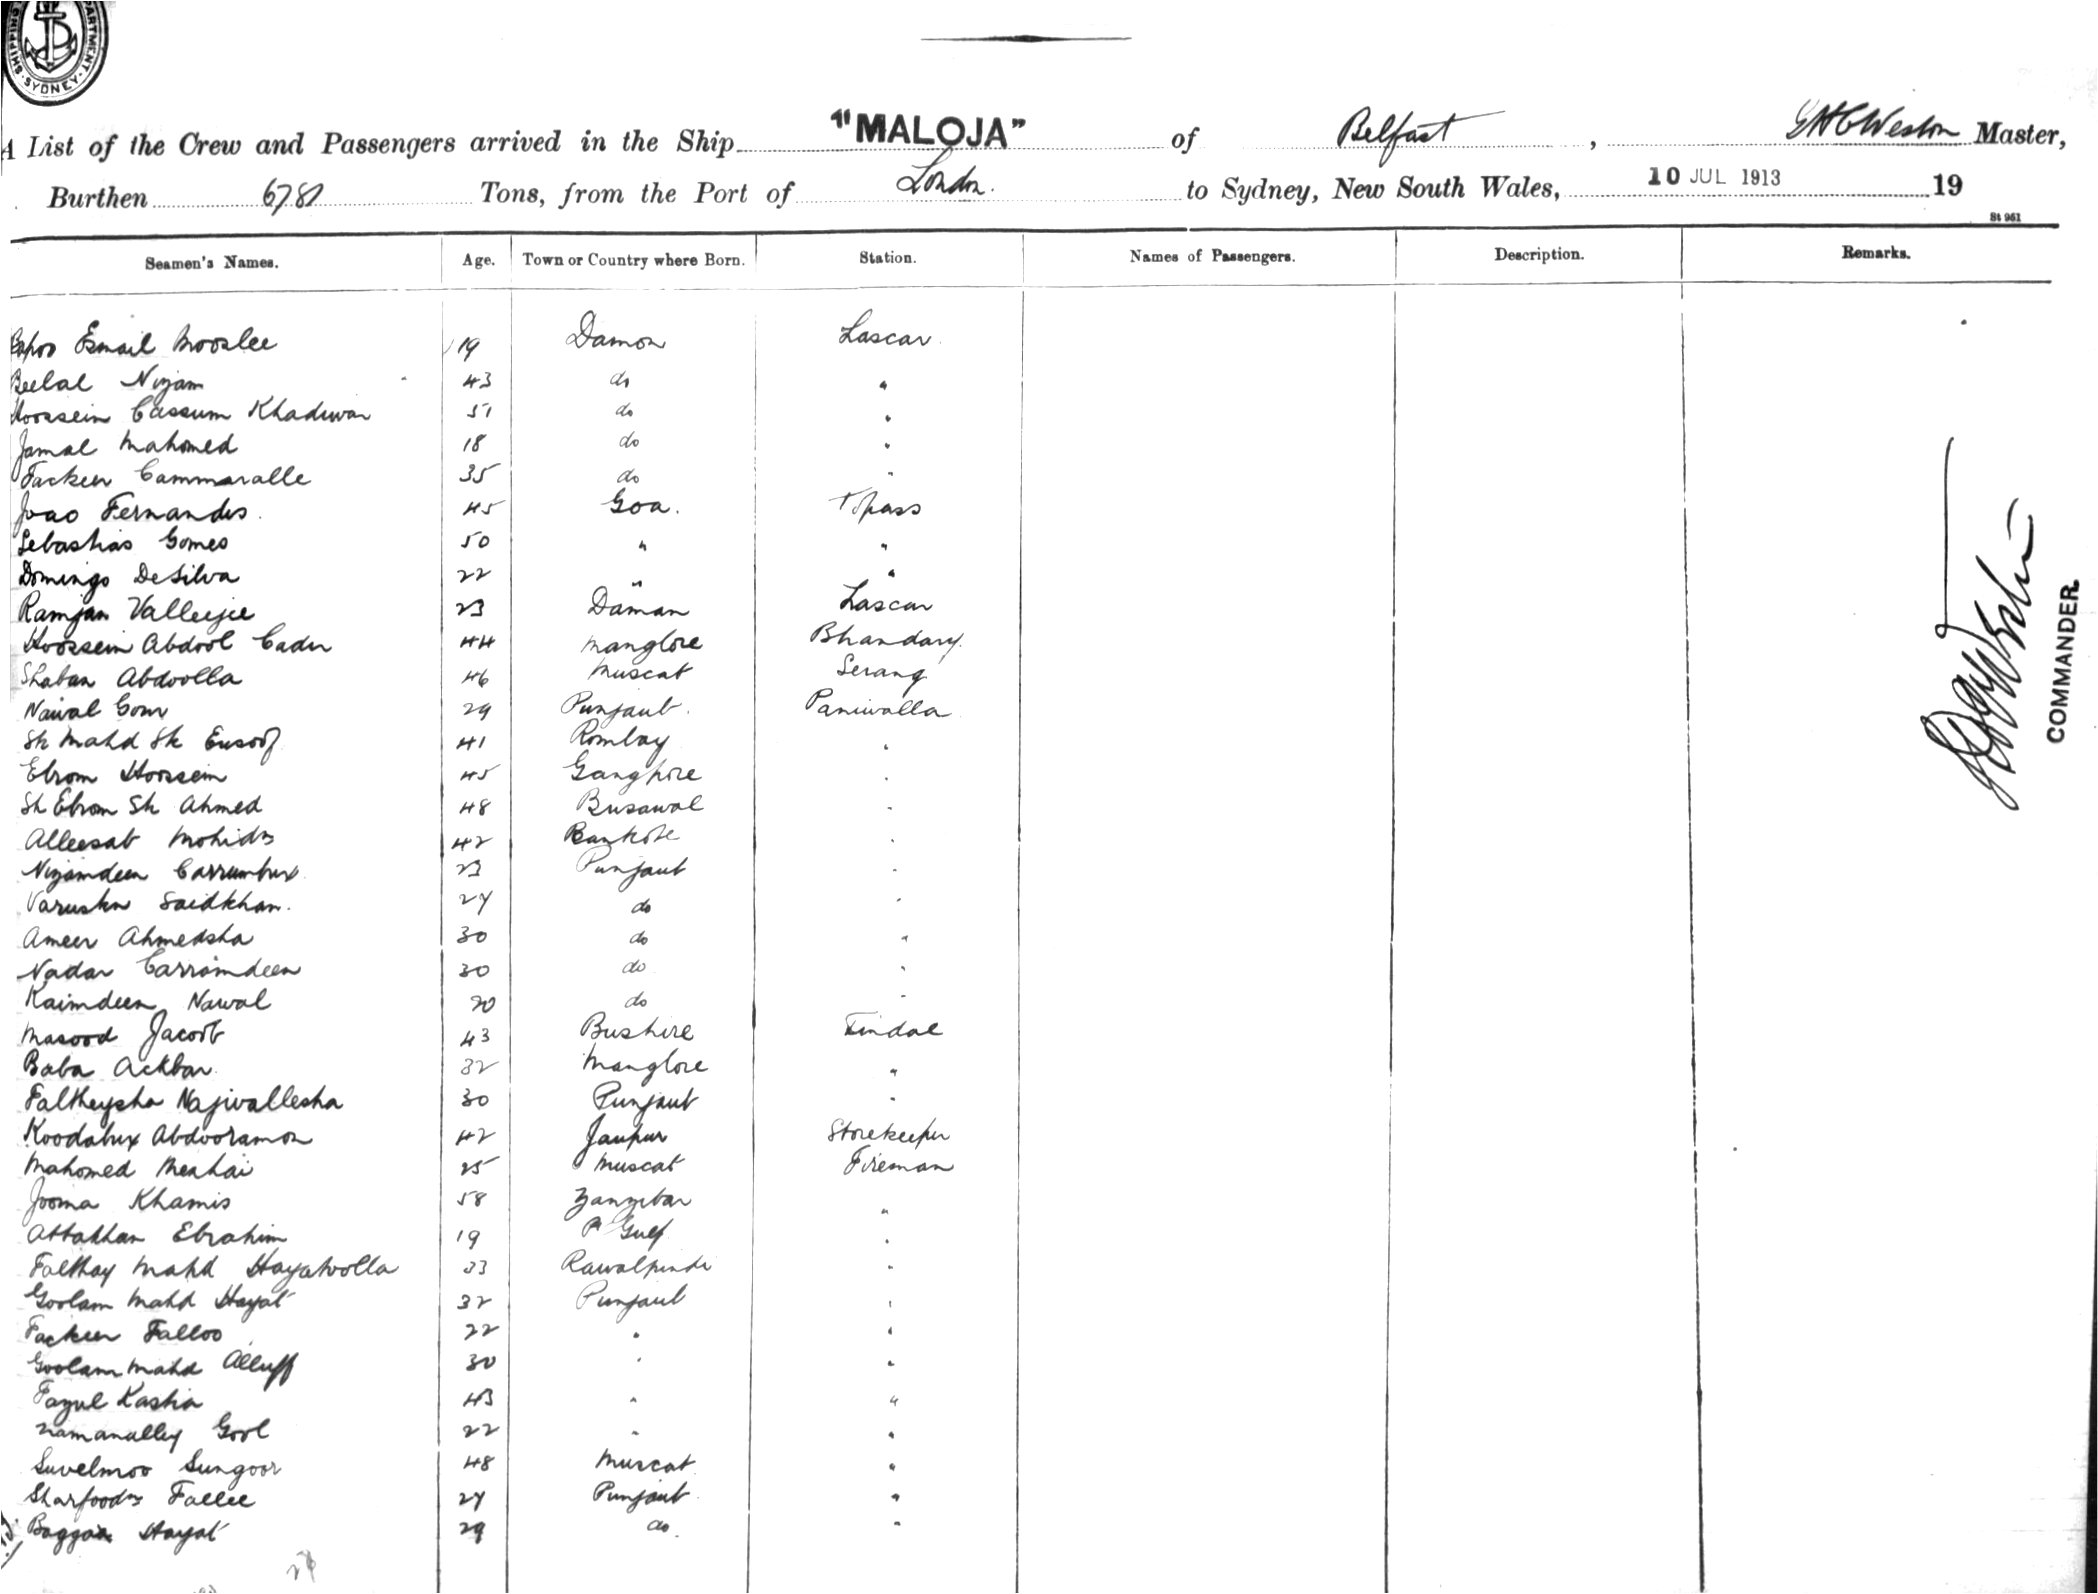 SHIPPING DEPARTMENT SYDNEY
A List of the Crew and Passengers arrived in the Ship "MALOJA" of Belfast, Weston Master,
Burthen 6781 Tons, from the Port of London. to Sydney, New South Wales, 10 JUL 1913 19
St 961
Seamen's Names. Age. Town or Country where Born. Station. Names of Passengers. Description. Remarks.
Esmail Mooslee 19 Damon Lascar
Beelal Nizam 43 do "
Hoossein Cassum Khadiwar 51 do "
Jamal Mahomed 18 do "
Fackeer Cammaralle 35 do "
Joao Fernandes. 45 Goa. Topass
Sebastiao Gomes 50 " "
Domingo DeSilva 22 " "
Ramjan Valleejee 23 Daman Lascar
Hoossein Abdool Cader 44 Manglore Bhandary.
Shaban Abdoolla 46 Muscat Serang
Nawal Gour 29 Punjaub. Paniwalla
Sk Mahd Sk Eusoof 41 Bombay "
Ebrom Hoossein 45 Ganghore "
Sk Ebrom Sk Ahmed 48 Busawal "
Alleesab Mohidn 42 Bankote "
Nizamdeen Carrumbux 23 Punjaub "
Saidkhan. 24 do "
Ameer Ahmedsha 30 do "
Nadar Carramdeen 30 do "
Kaimdeen Nawal 20 do "
Masood Jacoob 43 Bushire Tindal
Baba Ackbar. 32 Manglore "
Faltheysha Najivallesha 30 Punjaub "
Koodabux Abdooramon 42 Jaupur Storekeeper
Mahomed Menhai 25 Muscat Fireman
Jooma Khamis 58 Zanzibar "
Attakhan Ebrahim 19 P Gulf "
Falthay Mahd Hayatoolla 33 Rawalpindi "
Goolam Mahd Hayat 32 Punjaub "
Fackeer Falloo 22 " "
Goolam Mahd Alluff 30 " "
Fazul Kasha 43 " "
Namanalley Gool 22 " "
Suvelmoo Sungoor 48 Muscat "
Sharfoodn Fallee 24 Punjaub "
Baggaa Hayat 29 do. "
COMMANDER.